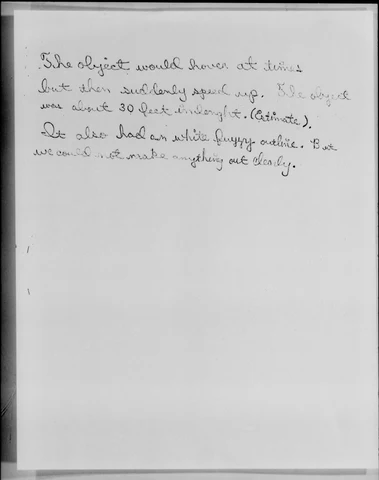 The object would hover at times
but then suddenly speed up. The object
was about 30 feet in lenght. (Estimate).
It also had an white fuzzy outline. But
we could not make anything out clearly.